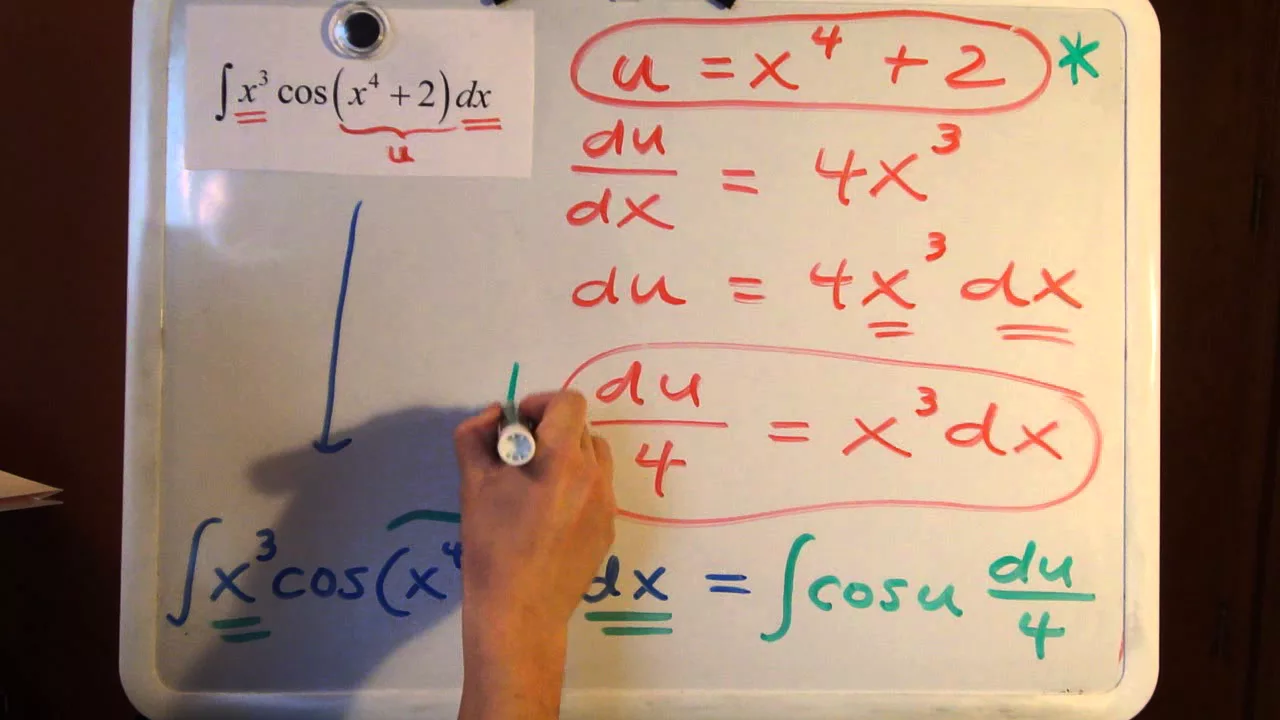 ∫ x³ cos(x⁴ + 2) dx
u
u = x⁴ + 2 *
du/dx = 4x³
du = 4x³ dx
du/4 = x³ dx
∫ x³ cos(x⁴ dx = ∫ cos u du/4